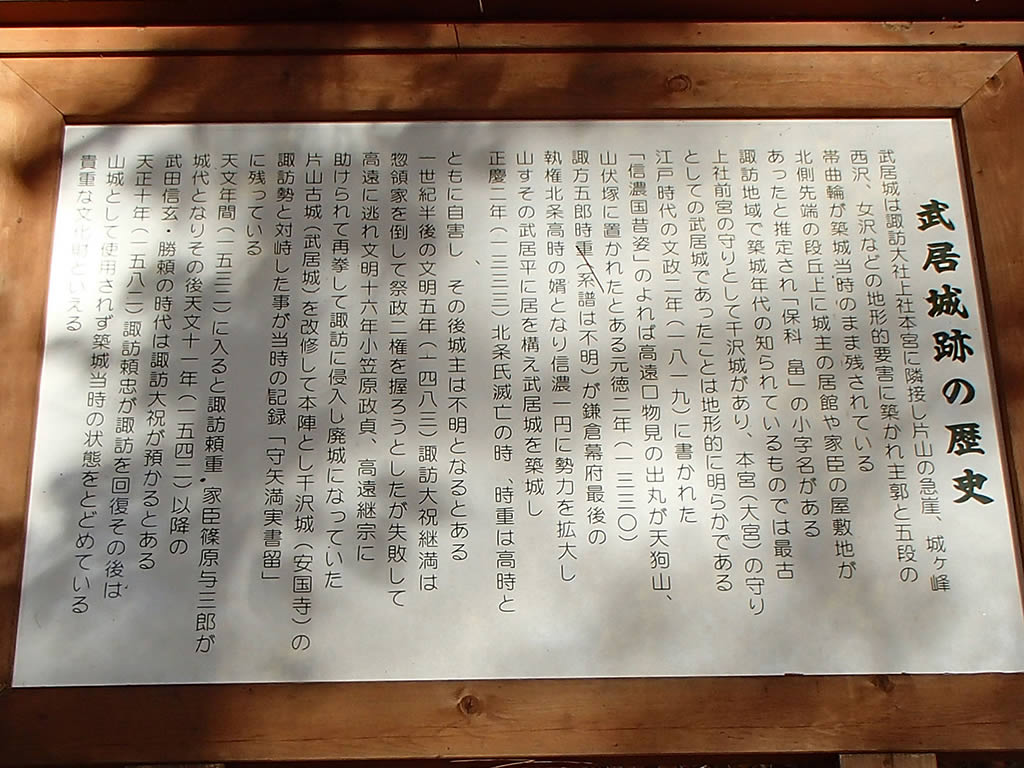 武居城跡の歴史
武居城は諏訪大社上社本宮に隣接し片山の急崖、城ヶ峰
西沢、女沢などの地形的要害に築かれ主郭と五段の
帯曲輪が築城当時のまま残されている
北側先端の段丘上に城主の居館や家臣の屋敷地が
あったと推定され「保科 畠」の小字名がある
諏訪地域で築城年代の知られているものでは最古
上社前宮の守りとして干沢城があり、本宮(大宮)の守り
としての武居城であったことは地形的に明らかである
江戸時代の文政二年(一八一九)に書かれた
「信濃国昔姿」のよれば高遠口物見の出丸が天狗山、
山伏塚に置かれたとある元徳二年(一三三〇)
諏方五郎時重(系譜は不明)が鎌倉幕府最後の
執権北条高時の婿となり信濃一円に勢力を拡大し
山すその武居平に居を構え武居城を築城し
正慶二年(一三三三)北条氏滅亡の時、時重は高時と
ともに自害し、その後城主は不明となるとある
一世紀半後の文明五年(一四八三)諏訪大祝継満は
惣領家を倒して祭政二権を握ろうとしたが失敗して
高遠に逃れ文明十六年小笠原政貞、高遠継宗に
助けられて再挙して諏訪に侵入し廃城になっていた
片山古城(武居城)を改修して本陣とし干沢城(安国寺)の
諏訪勢と対峙した事が当時の記録「守矢満実書留」
に残っている
天文年間(一五三二)に入ると諏訪頼重・家臣篠原与三郎が
城代となりその後天文十一年(一五四二)以降の
武田信玄・勝頼の時代は諏訪大祝が預かるとある
天正十年(一五八二)諏訪頼忠が諏訪を回復その後は
山城として使用されず築城当時の状態をとどめている
貴重な文化財といえる